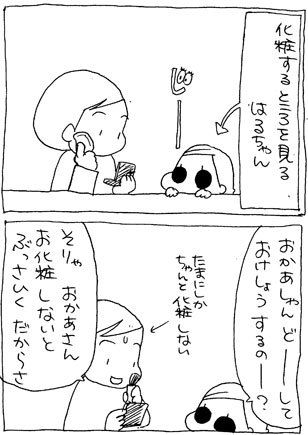 化粧するところを見る
はるちゃん
じーー
おかあしゃんどーーして
おけしょうするのー?
たまにしか
ちゃんと化粧しない
そりゃ おかあさん
お化粧しないと
ぶっさいくだからさ